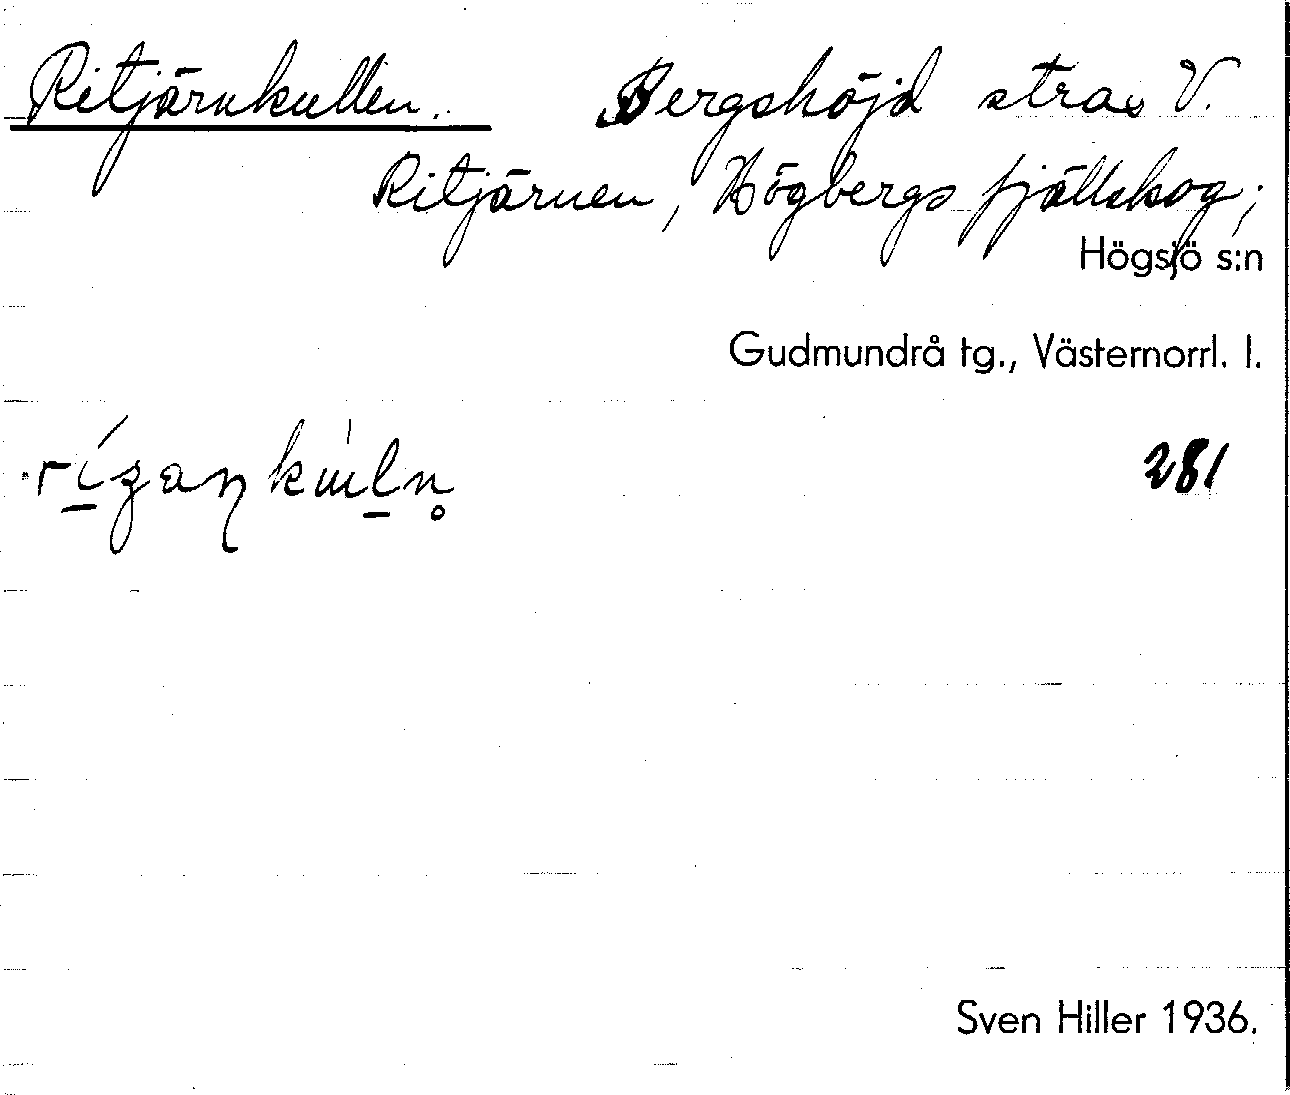 Ritjärnkullen. Bergshöjd strax V.
Ritjärnen, Högbergs fjällskog;
Högsjö s:n
Gudmundrå tg., Västernorrl. l.
281
Sven Hiller 1936.